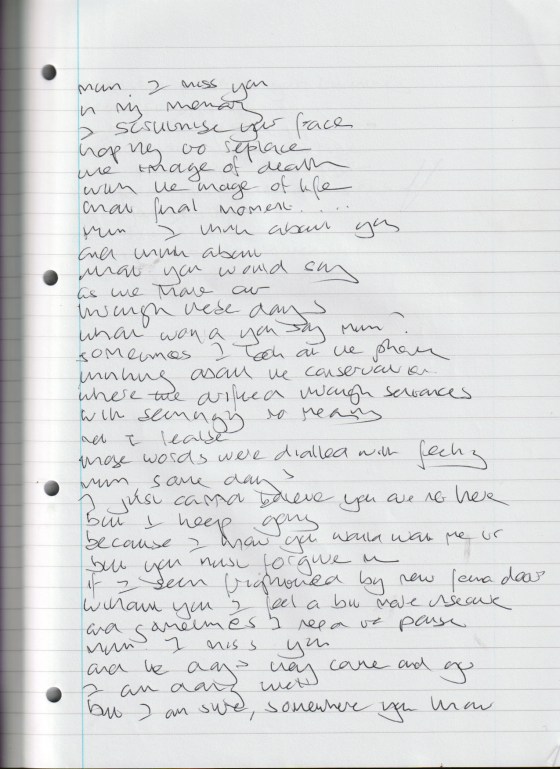 mum I miss you
in my memory
I scrutinise your face
hoping to replace
the image of death
with the image of life
that final moment.....
mum I think about you
and think about
what you would say
as we move our
through these days
what would you say mum?
sometimes I look at the phone
thinking about the conversation
where we drifted through sentences
with seemingly no meaning
now I realise
those words were dialled with feeling
mum some days
I just cannot believe you are not here
but I keep going
because I know you would want me to
but you must forgive me
if I seem frightened by new found days
without you I feel a bit more insecure
and sometimes I need to pause
mum I miss you
and the days they come and go
I am doing well
but I am sure, somewhere you know